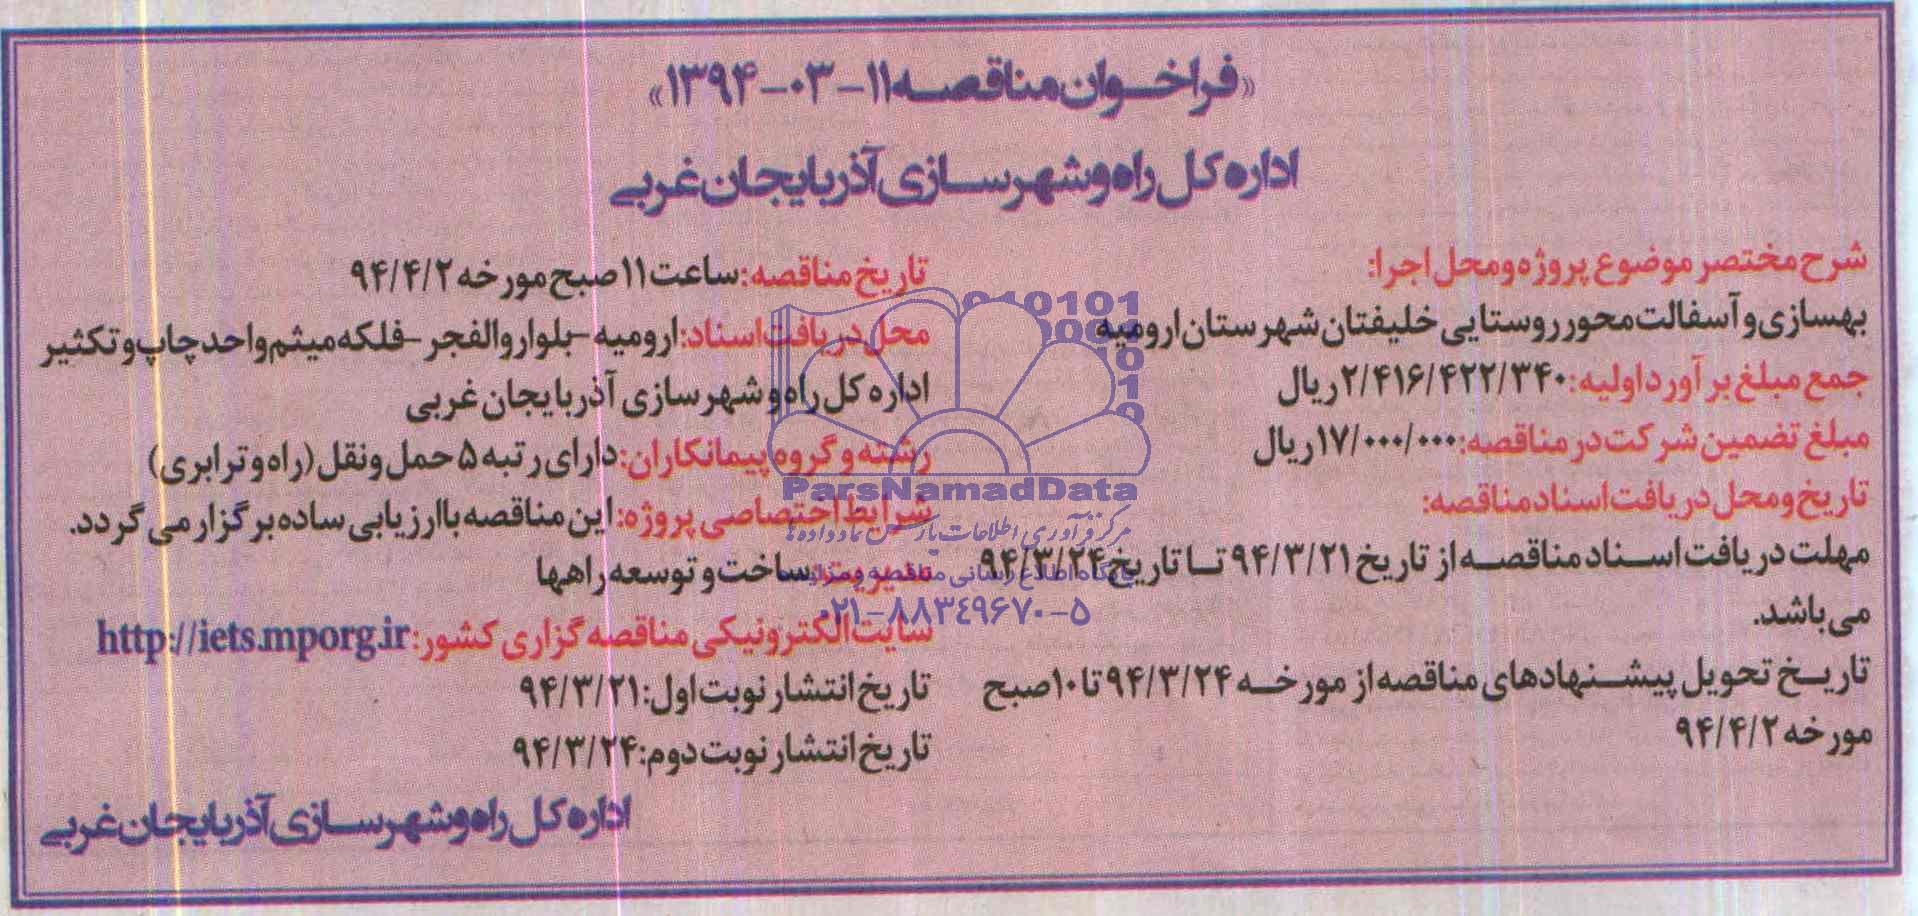 «فراخوان مناقصه ۱۱-۰۳-۱۳۹۴»
اداره کل راه و شهرسازی آذربایجان غربی
شرح مختصر موضوع پروژه و محل اجرا:
بهسازی و آسفالت محور روستایی خلیفتان شهرستان ارومیه
جمع مبلغ برآورد اولیه: ۲/۴۱۶/۴۲۲/۳۴۰ ریال
مبلغ تضمین شرکت در مناقصه: ۱۷/۰۰۰/۰۰۰ ریال
تاریخ و محل دریافت اسناد مناقصه:
مهلت دریافت اسناد مناقصه از تاریخ ۹۴/۳/۲۱ تا تاریخ ۹۴/۳/۲۴
می باشد.
تاریخ تحویل پیشنهادهای مناقصه از مورخه ۹۴/۳/۲۴ تا ۱۰ صبح
مورخه ۹۴/۴/۲
تاریخ مناقصه: ساعت ۱۱ صبح مورخه ۹۴/۴/۲
محل دریافت اسناد: ارومیه - بلوار والفجر - فلکه میثم واحد چاپ و تکثیر
اداره کل راه و شهرسازی آذربایجان غربی
رشته و گروه پیمانکاران: دارای رتبه ۵ حمل و نقل (راه و ترابری)
شرایط اختصاصی پروژه: این مناقصه با ارزیابی ساده برگزار می گردد.
مدیریت: ساخت و توسعه راهها
سایت الکترونیکی مناقصه گزاری کشور: http://iets.mporg.ir
تاریخ انتشار نوبت اول: ۹۴/۳/۲۱
تاریخ انتشار نوبت دوم: ۹۴/۳/۲۴
اداره کل راه و شهرسازی آذربایجان غربی
ParsNamadData
مرکز فرآوری اطلاعات پارس نماد داده ها
پایگاه اطلاع رسانی مناقصه و مزایده
۰۲۱-۸۸۳۴۹۶۷۰-۵